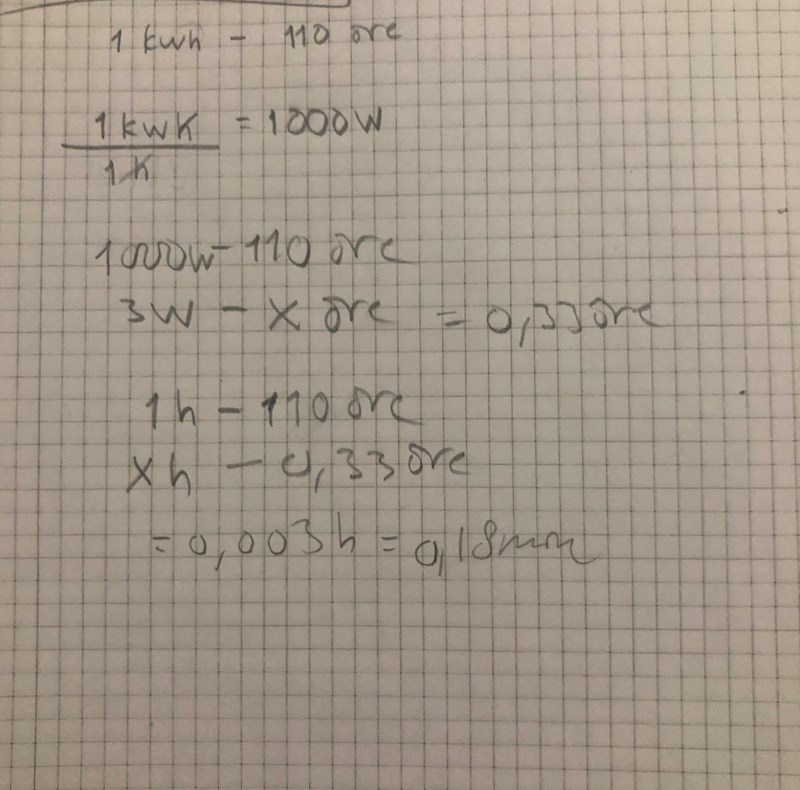 1 kwh - 110 öre
1 kwh = 1000w
1h
1000w - 110 öre
3w - x öre = 0,33 öre
1h - 110 öre
xh - 0,33 öre
= 0,003h = 0,18min